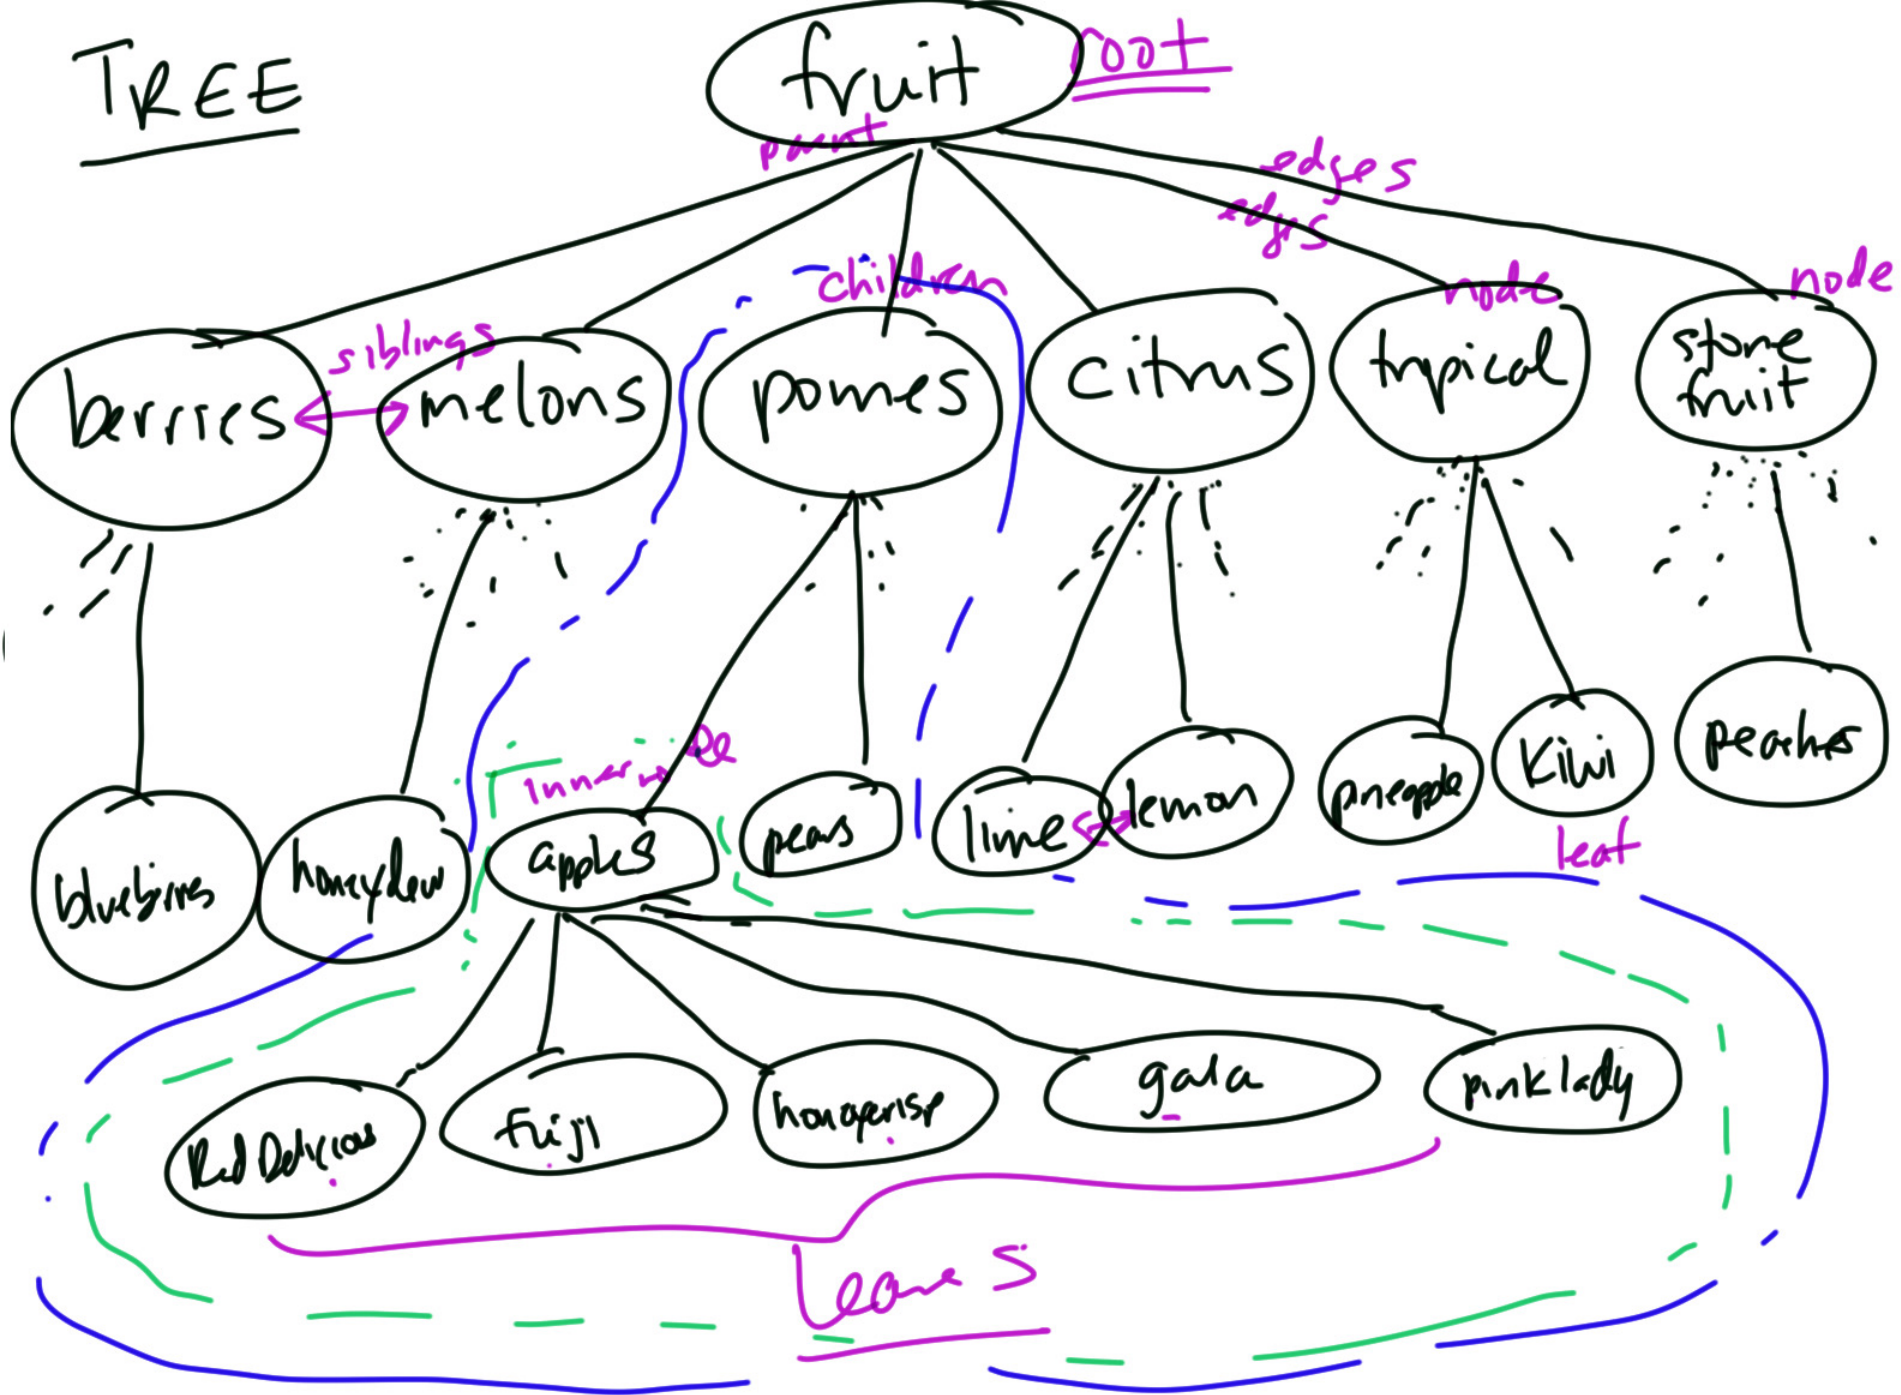 TREE
fruit
root
parent
edges
edges
children
node
node
siblings
berries
melons
pomes
citrus
tropical
stone
fruit
inner node
blueberries
honeydew
apples
pears
lime
lemon
pineapple
Kiwi
peaches
leaf
Red Delicious
fuiji
honeycrisp
gala
pink lady
Leaves